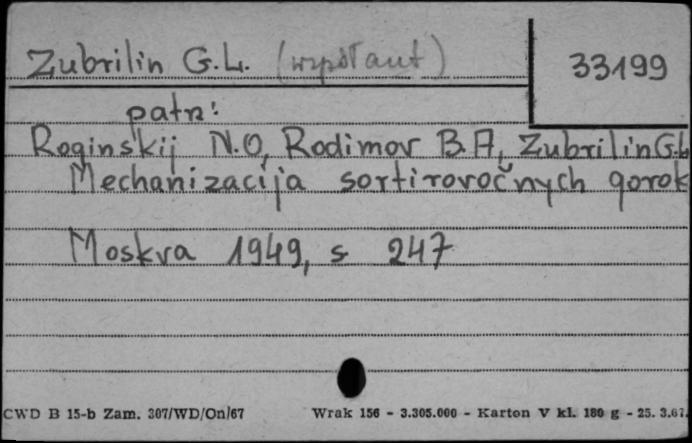 Zubrilin G.L. (współaut)
33199
patrz:
Roginskij N.O, Rodimov B.A, Zubrilin G.L
Mechanizacija sortirovočnych gorok
Moskva 1949, s 247
CWD B 15-b Zam. 307/WD/On/67 Wrak 156 - 3.305.000 - Karton V kl. 180 g - 25. 3.67.